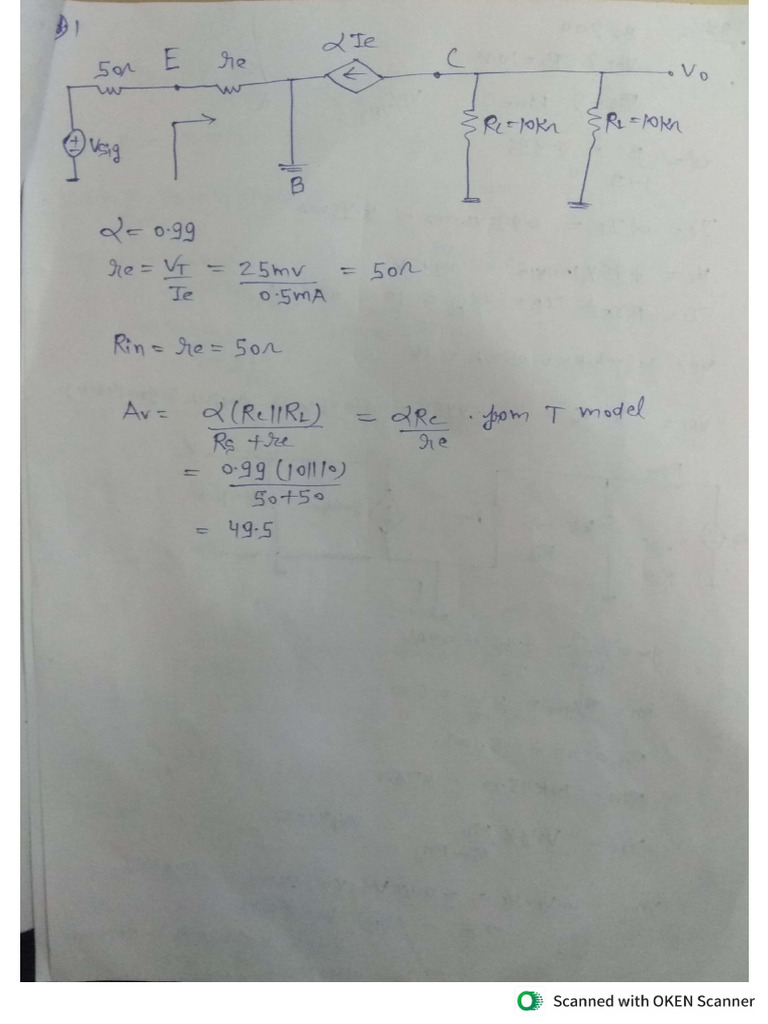 1
αIe
50Ω E re C Vo
Vsig RC=10KΩ RL=10KΩ
B
α = 0.99
re = VT/Ie = 25mv/0.5mA = 50Ω
Rin = re = 50Ω
Av = α(RC||RL)/RS+re = αRC/re . from T model
= 0.99(10||10)/50+50
= 49.5
Scanned with OKEN Scanner